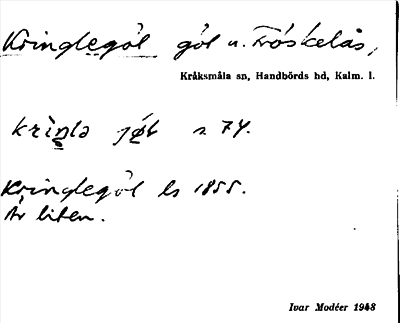 Kringlegöl göl u. Fröskelås,
Kråksmåla sn, Handbörds hd, Kalm. l.
s. 74.
Kringlegöl ls 1855.
Är liten.
Ivar Modéer 1943